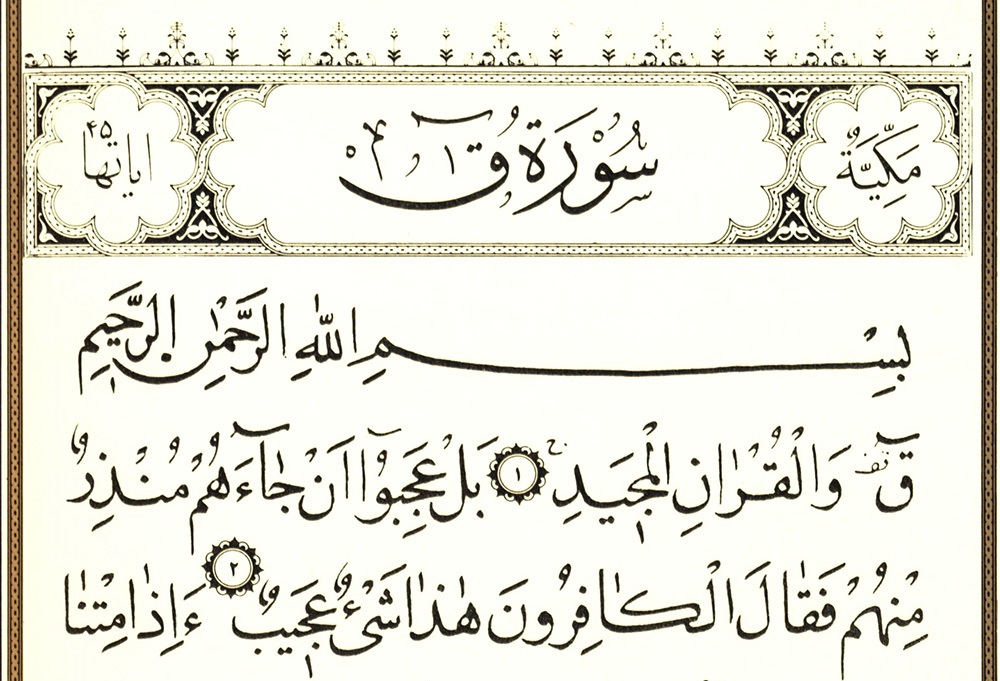 مَكِّيَّةٌ
سُورَةُ قٓ
اياتها ۴۵
بِسْمِ اللّٰهِ الرَّحْمٰنِ الرَّحِيمِ
قٓ وَالْقُرْاٰنِ الْمَجِيدِ ١ بَلْ عَجِبُوٓا اَنْ جَٓاءَهُمْ مُنْذِرٌ
مِنْهُمْ فَقَالَ الْكَافِرُونَ هٰذَا شَيْءٌ عَجِيبٌ ٢ ءَاِذَا مِتْنَا